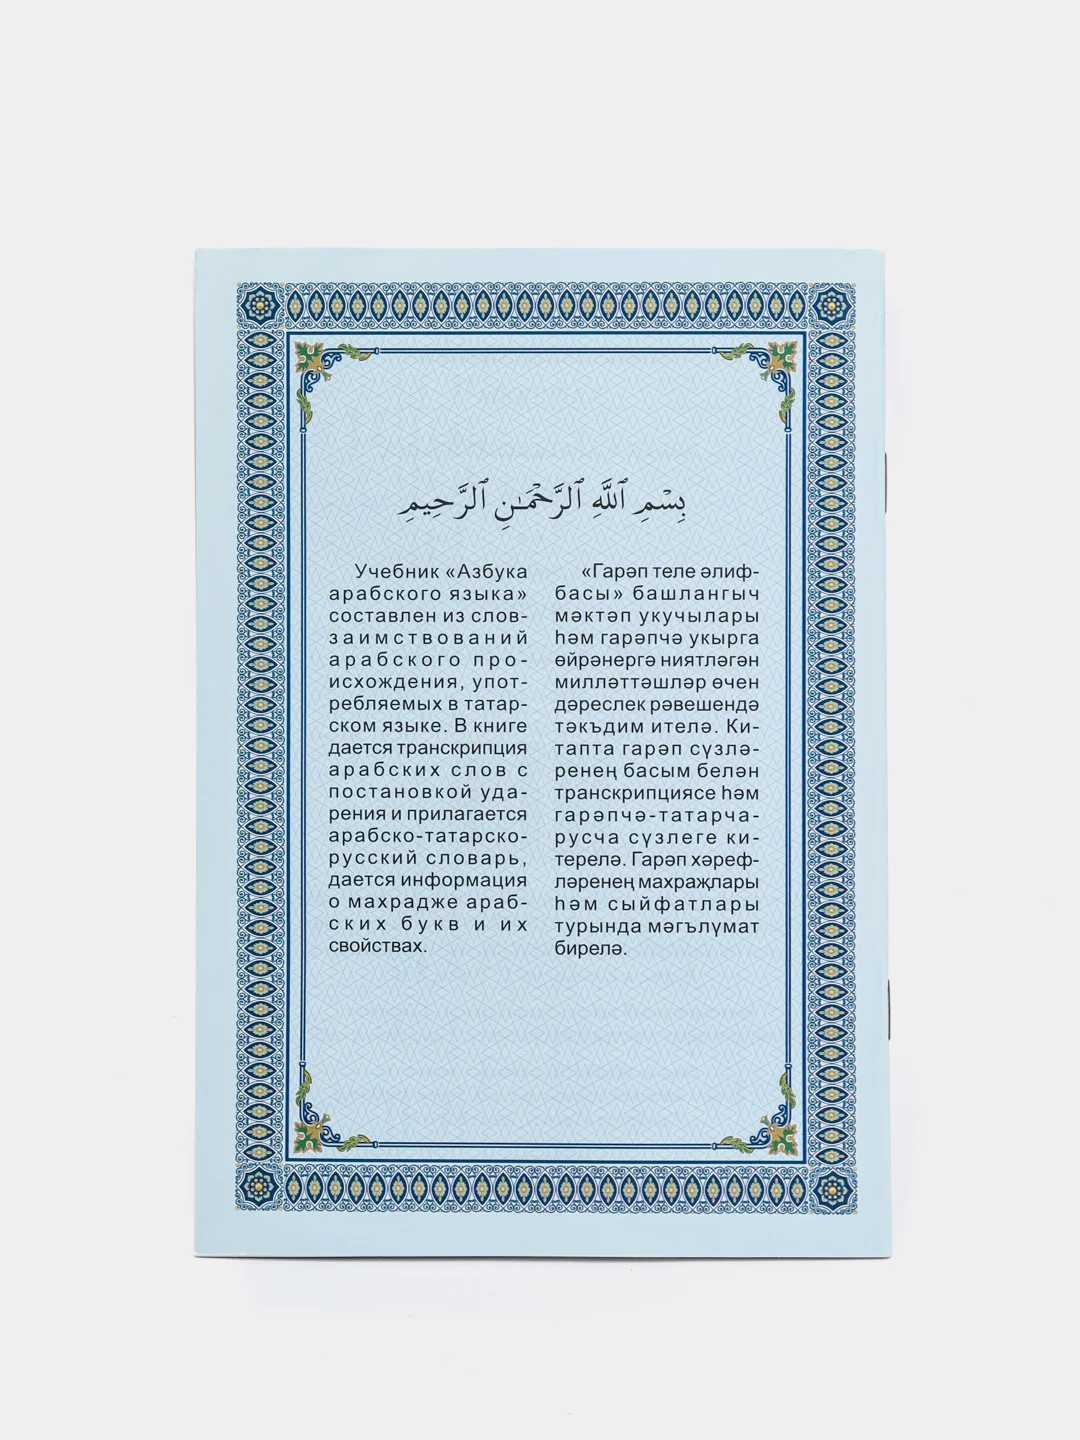 بِسْمِ ٱللَّهِ ٱلرَّحْمَـٰنِ ٱلرَّحِيمِ
Учебник «Азбука
арабского языка»
составлен из слов-
заимствований
арабского про-
исхождения, упот-
ребляемых в татар-
ском языке. В книге
дается транскрипция
арабских слов с
постановкой уда-
рения и прилагается
арабско-татарско-
русский словарь,
дается информация
о махрадже араб-
ских букв и их
свойствах.
«Гарәп теле әлиф-
басы» башлангыч
мәктәп укучылары
һәм гарәпчә укырга
өйрәнергә ниятләгән
милләттәшләр өчен
дәреслек рәвешендә
тәкъдим ителә. Ки-
тапта гарәп сүзлә-
ренең басым белән
транскрипциясе һәм
гарәпчә-татарча-
русча сүзлеге ки-
терелә. Гарәп хәреф-
ләренең махраҗлары
һәм сыйфатлары
турында мәгълүмат
бирелә.